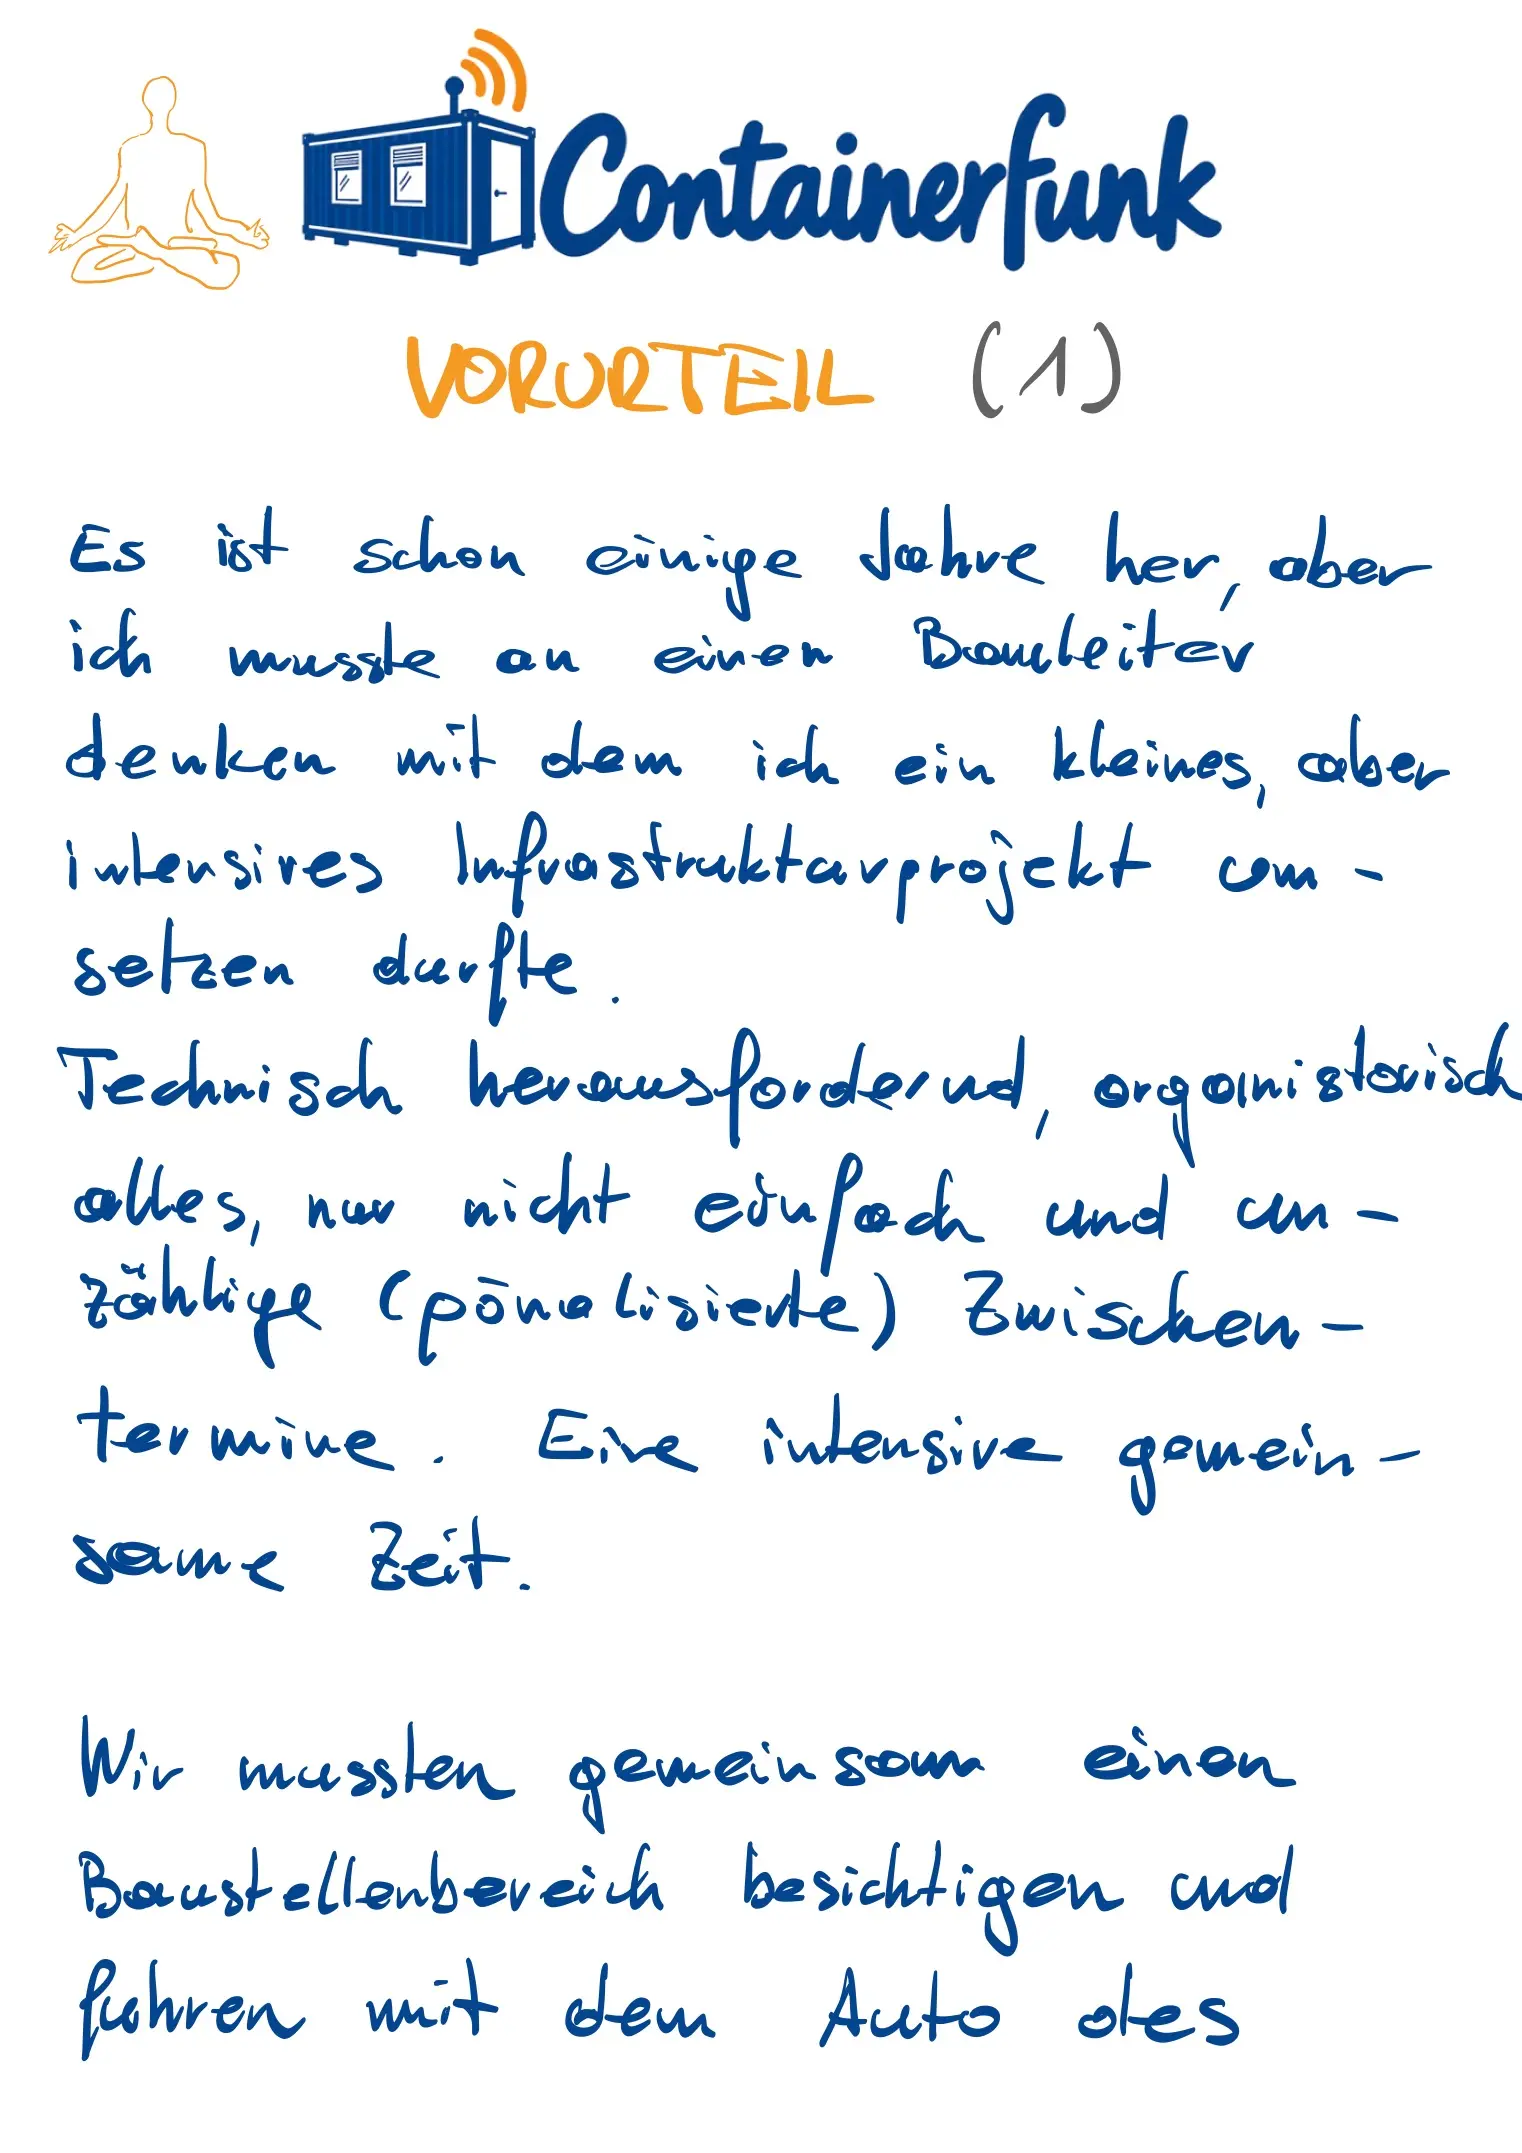 Containerfunk
VORURTEIL (1)
Es ist schon einige Jahre her, aber
ich musste an einen Bauleiter
denken mit dem ich ein kleines, aber
intensives Infrastrukturprojekt um-
setzen durfte.
Technisch herausfordernd, organistorisch
alles, nur nicht einfach und un-
zählige (pönalisierte) Zwischen-
termine. Eine intensive gemein-
same Zeit.
Wir mussten gemeinsam einen
Baustellenbereich besichtigen und
fuhren mit dem Auto des